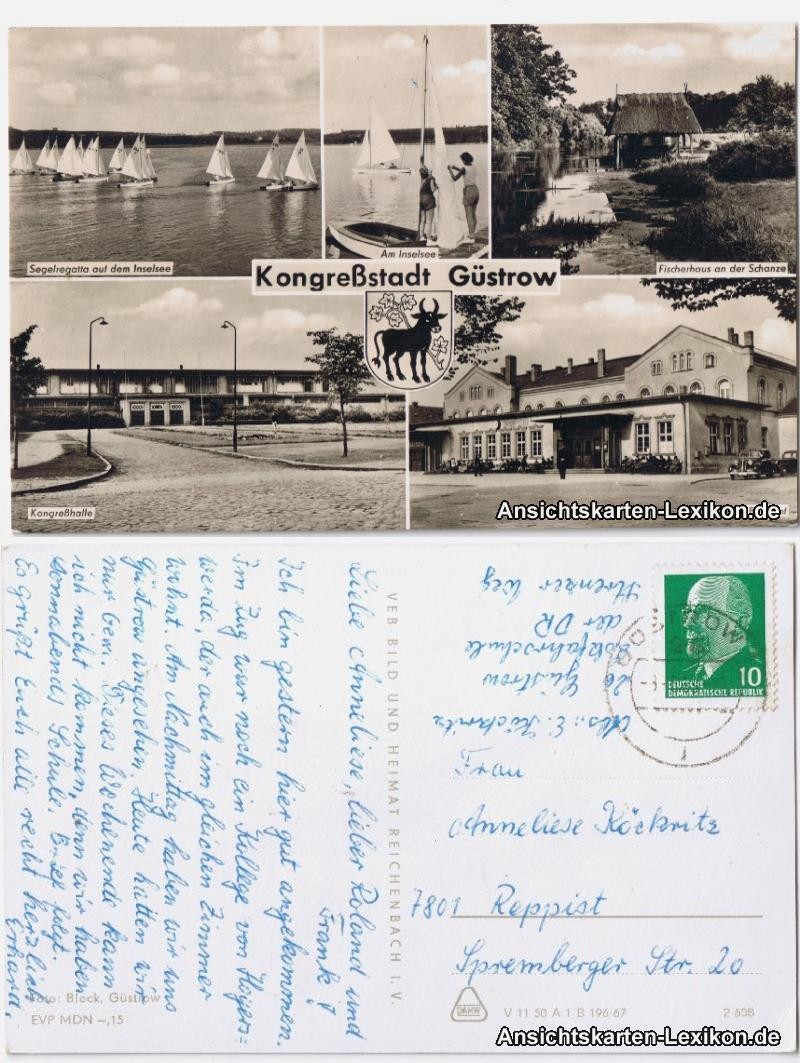 Segelregatta auf dem Inselsee
Am Inselsee
Fischerhaus an der Schanze
Kongreßstadt Güstrow
Kongreßhalle
Ansichtskarten-Lexikon.de
Liebe Anneliese, lieber Roland und
Frank!
Ich bin gestern hier gut angekommen.
Im Zug war noch ein Kollege von Hoyers=
werda, der auch im gleichen Zimmer
wohnt. Am Nachmittag haben wir uns
Güstrow angesehen. Heute hatten wir
nur Gewi. Dieses Wochenende kann
ich nicht kommen, denn wir haben
sonnabends Schule. Brief folgt.
Es grüßt Euch alle recht herzlich
Erhard.
Foto: Block, Güstrow
EVP MDN –,15
VEB BILD UND HEIMAT REICHENBACH i. V.
Abs.: E. Köckritz
26 Güstrow
der DR
Weg
DEUTSCHE
DEMOKRATISCHE REPUBLIK
10
Frau
Anneliese Köckritz
7801 Reppist
Spremberger Str. 20
DAHW
V 11 50 A 1 B 196/67
2 608
Ansichtskarten-Lexikon.de